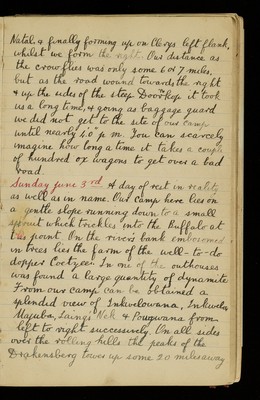 Natal & finally forming up on Clerys left flank,
whilst we form the right. Our distance as
the crow flies was only some 6 or 7 miles,
but as the road wound towards the right
& up the sides of the steep Doornkop it took
us a long time, & going as baggage guard
we did not get to the site of our camp
until nearly 4.0" p m. You can scarcely
imagine how long a time it takes a couple
of hundred ox wagons to get over a bad
road.
Sunday June 3rd A day of rest in reality
as well as in name. Our camp here lies on
a gentle slope running down to a small
spruit which trickles into the Buffalo at
this point. On the rivers bank embosomed
in trees lies the farm of the well-to-do
dopper Coetzee. In one of the outhouses
was found a large quantity of dynamite
From our camp can be obtained a
splendid view of Inkwelowana, Inkwelo,
Majuba, Laings Nek & Pougwana from
left to right successively. On all sides
over the rolling hills the peaks of the
Drakensberg tower up some 20 miles away